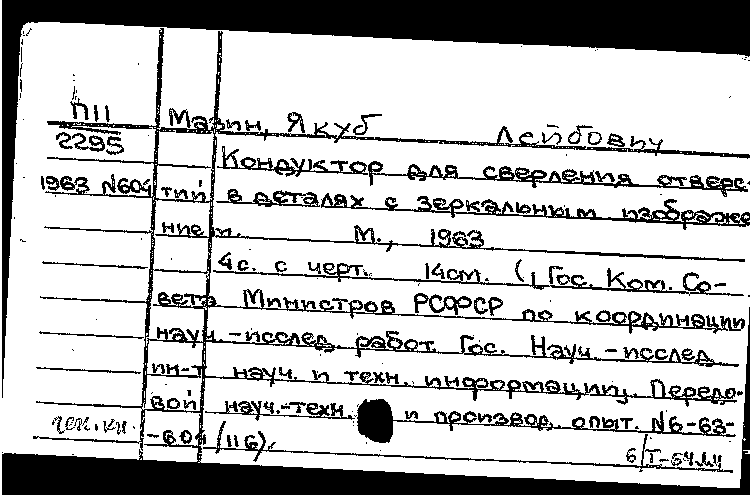 П11
2295
1963 N604
Мазин, Якуб Лейбович
Кондуктор для сверления отверс-
тий в деталях с зеркальным изображе
нием. М., 1963
4с. с черт. 14см. (Гос. Ком. Со-
вета Министров РСФСР по координации
науч.-исслед. работ. Гос. Науч.-исслед
ин-т науч. и техн. информации. Передо-
вой науч.-техн. и производ. опыт. N6-63-
-604/116).